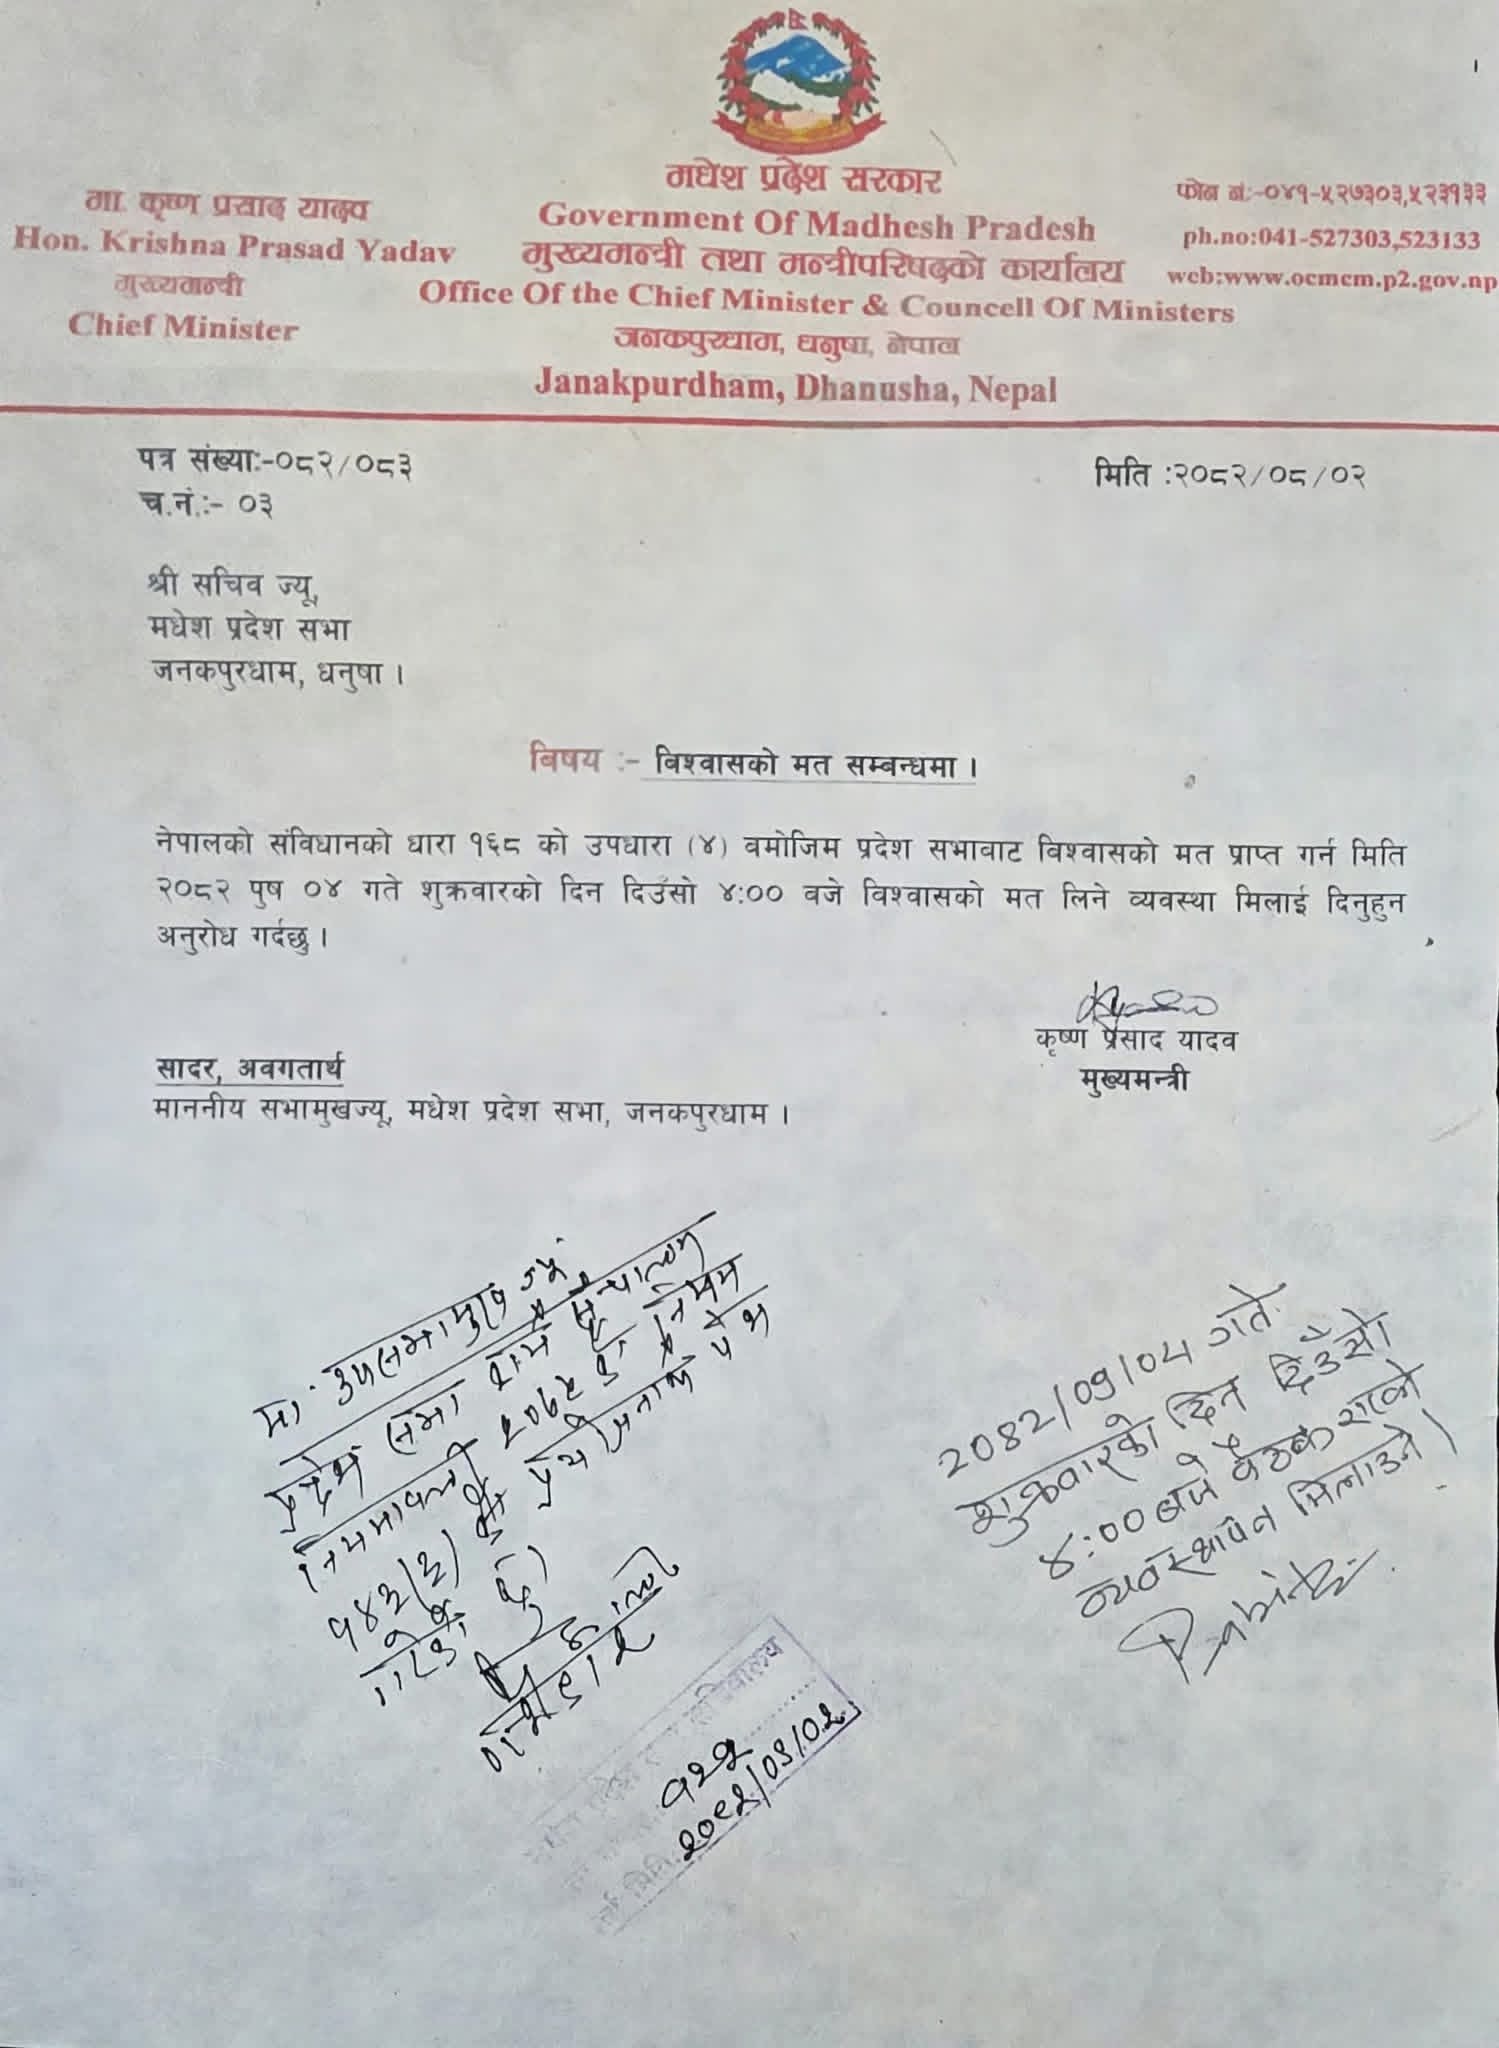 मधेश प्रदेश सरकार
Government Of Madhesh Pradesh
मुख्यमन्त्री तथा मन्त्रीपरिषद्को कार्यालय
Office Of the Chief Minister & Councell Of Ministers
जनकपुरधाम, धनुषा, नेपाल
Janakpurdham, Dhanusha, Nepal
मा. कृष्ण प्रसाद यादव
Hon. Krishna Prasad Yadav
मुख्यमन्त्री
Chief Minister
फोन नं:-०४१-५२७३०३,५२३१३३
ph.no:041-527303,523133
web:www.ocmcm.p2.gov.np
पत्र संख्याः-०८२/०८३
च.नं.:- ०३
मिति :२०८२/०८/०२
श्री सचिव ज्यू,
मधेश प्रदेश सभा
जनकपुरधाम, धनुषा ।
बिषय :- विश्वासको मत सम्बन्धमा ।
नेपालको संविधानको धारा १६८ को उपधारा (४) वमोजिम प्रदेश सभावाट विश्वासको मत प्राप्त गर्न मिति
२०८२ पुष ०४ गते शुक्रवारको दिन दिउँसो ४:०० वजे विश्वासको मत लिने व्यवस्था मिलाई दिनुहुन
अनुरोध गर्दछु ।
कृष्ण प्रसाद यादव
मुख्यमन्त्री
सादर, अवगतार्थ
माननीय सभामुखज्यू, मधेश प्रदेश सभा, जनकपुरधाम ।
मा. उपसभामुख ज्यू
प्रदेश सभा कार्य संचालन
नियमावली
१४३(२) को
2082/09/04 गते
शुक्रवारको दिन दिउँसो
४:०० बजे बैठक राख्ने
व्यवस्थापन मिलाउने ।
१२१